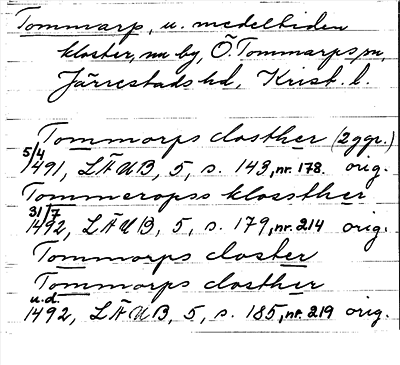 Tommarp, u. medeltiden
kloster, nu by, Ö. Tommarps sn,
Järrestads hd, Krist. l.
Tommorps closther (2 ggr.)
5/4 1491, LÄUB, 5, s. 143, nr. 178. orig.
Tommeropss klossther
31/7 1492, LÄUB, 5, s. 179, nr. 214 orig.
Tommorps closter
Tommorps closther
u.d. 1492, LÄUB, 5, s. 185, nr. 219 orig.